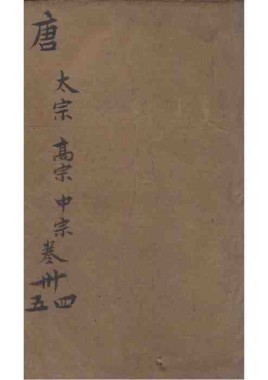 唐
太宗 高宗 中宗 卷卅四
五